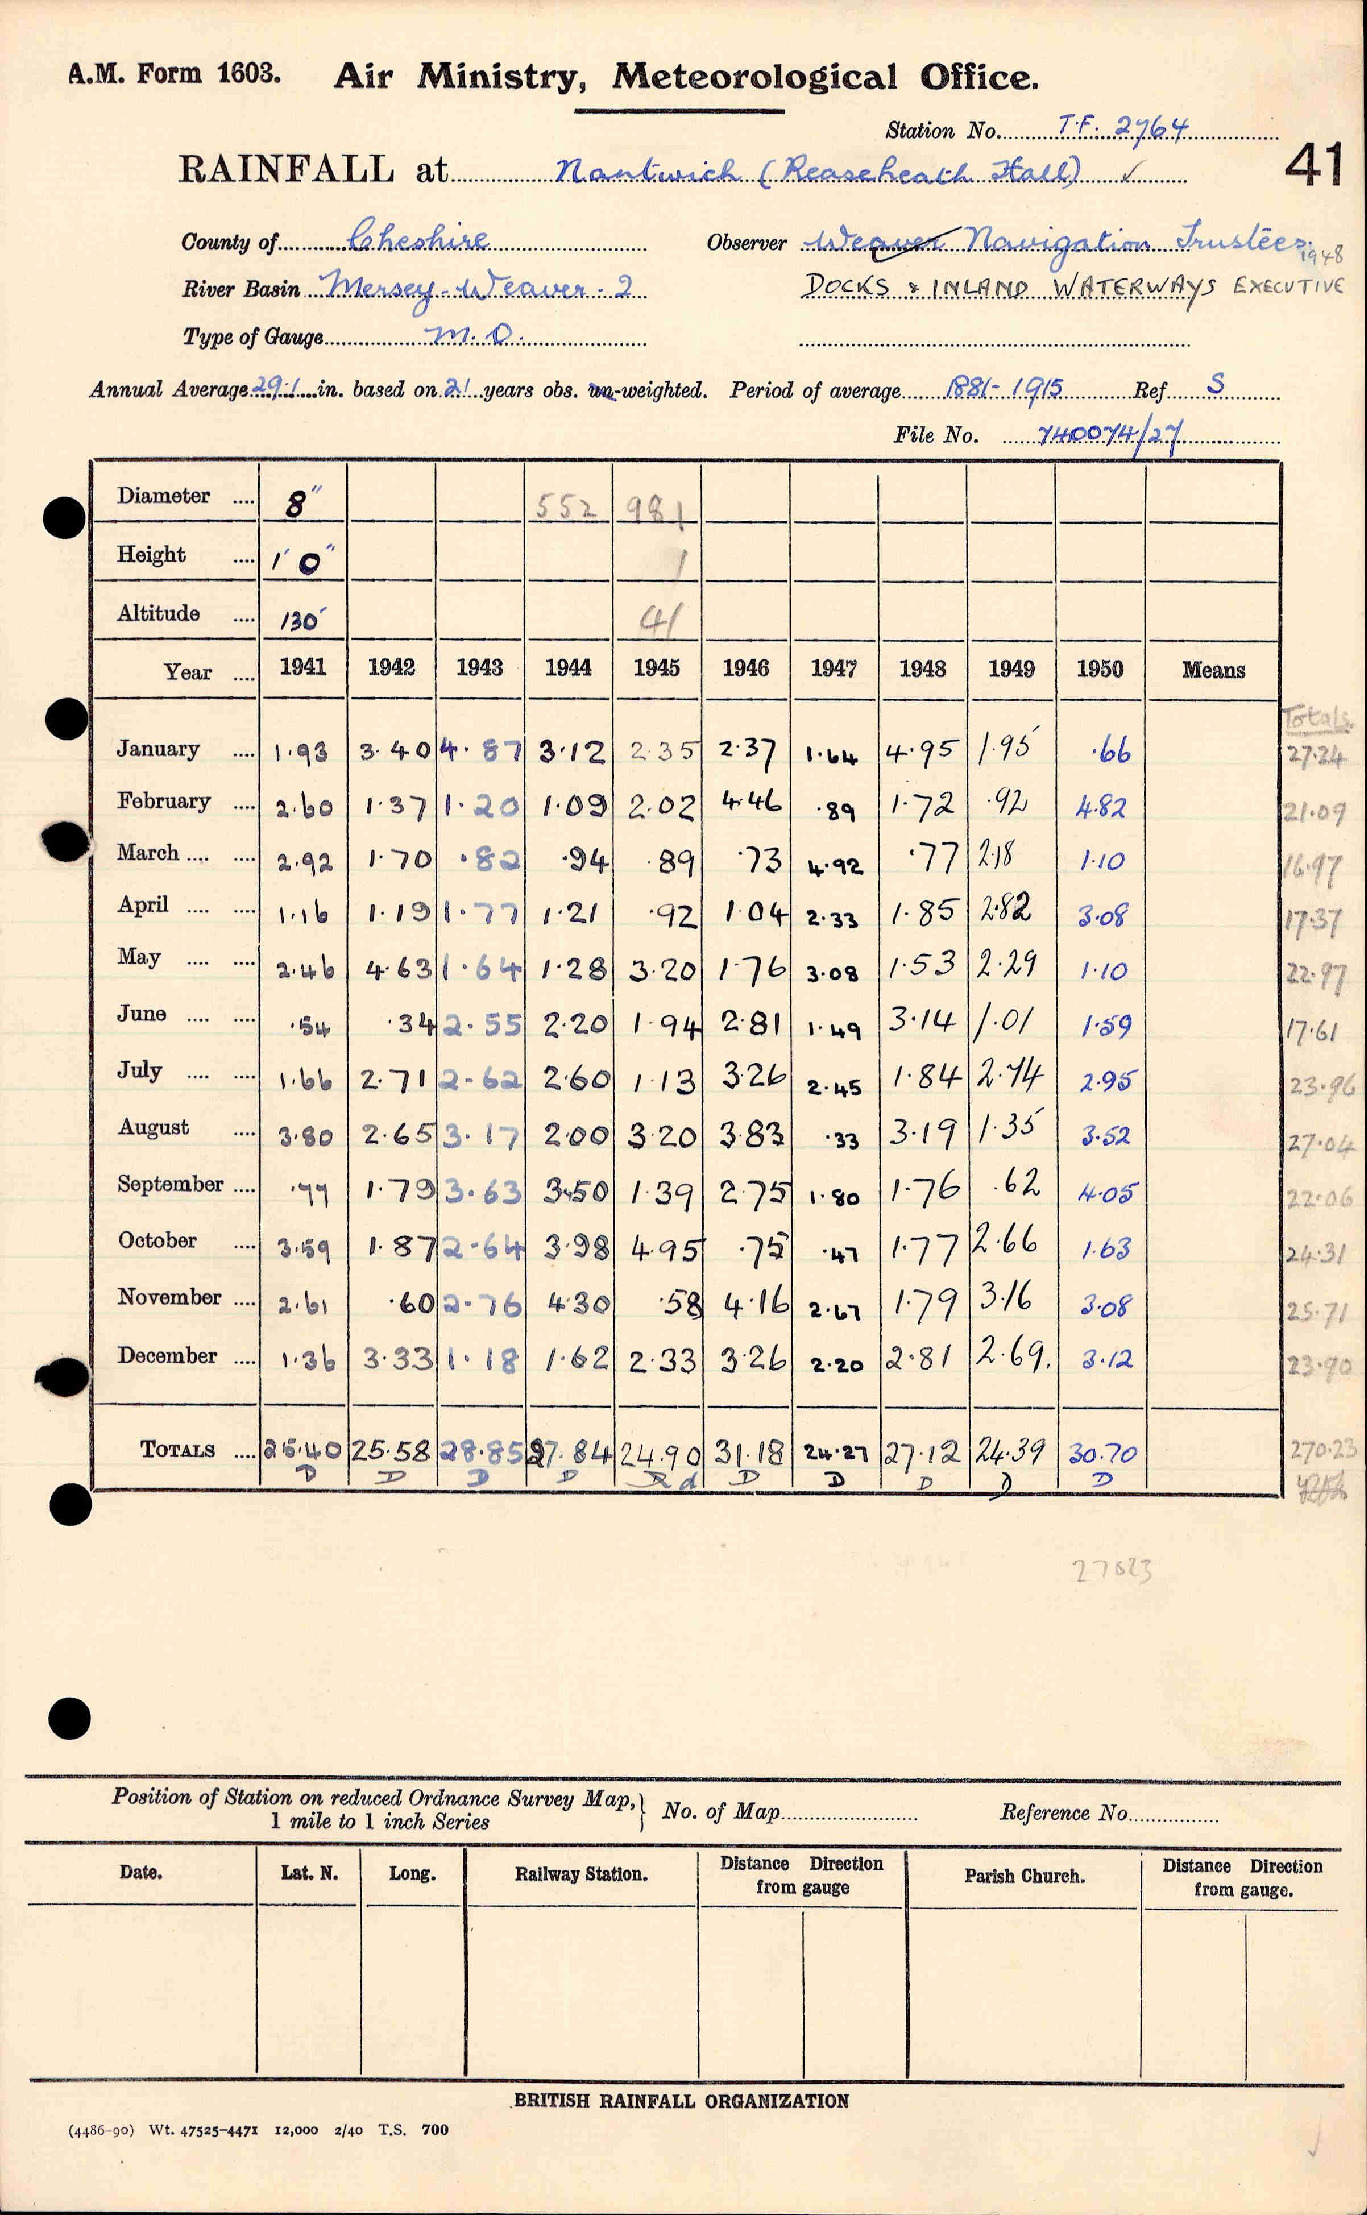 A.M. Form 1603. Air Ministry, Meteorological Office.
Station No. T.F. 2764
41
RAINFALL at Nantwich (Reaseheath Hall) ✓
County of Cheshire Observer Weaver Navigation Trustees. 1948
River Basin Mersey-Weaver-2 DOCKS & INLAND WATERWAYS EXECUTIVE
Type of Gauge M.O.
Annual Average 29.1 in. based on 21 years obs. un-weighted. Period of average 1881-1915 Ref S
File No. 740074/27
Diameter .... 8" 552 981
Height .... 1' 0" 1
Altitude .... 130' 41
Year .... 1941 1942 1943 1944 1945 1946 1947 1948 1949 1950 Means
Totals.
January .... 1.93 3.40 4.87 3.12 2.35 2.37 1.64 4.95 1.95 .66 27.24
February .... 2.60 1.37 1.20 1.09 2.02 4.46 .89 1.72 .92 4.82 21.09
March .... .... 2.92 1.70 .82 .94 .89 .73 4.92 .77 2.18 1.10 16.97
April .... .... 1.16 1.19 1.77 1.21 .92 1.04 2.33 1.85 2.82 3.08 17.37
May .... .... 2.46 4.63 1.64 1.28 3.20 1.76 3.08 1.53 2.29 1.10 22.97
June .... .... .54 .34 2.55 2.20 1.94 2.81 1.49 3.14 1.01 1.59 17.61
July .... .... 1.66 2.71 2.62 2.60 1.13 3.26 2.45 1.84 2.74 2.95 23.96
August .... 3.80 2.65 3.17 2.00 3.20 3.83 .33 3.19 1.35 3.52 27.04
September .... .77 1.79 3.63 3.50 1.39 2.75 1.80 1.76 .62 4.05 22.06
October .... 3.59 1.87 2.64 3.98 4.95 .75 .47 1.77 2.66 1.63 24.31
November .... 2.61 .60 2.76 4.30 .58 4.16 2.67 1.79 3.16 3.08 25.71
December .... 1.36 3.33 1.18 1.62 2.33 3.26 2.20 2.81 2.69. 3.12 23.90
TOTALS .... 25.40 25.58 28.85 27.84 24.90 31.18 24.27 27.12 24.39 30.70 270.23
D D D D D D D D D
27023
Position of Station on reduced Ordnance Survey Map, } No. of Map Reference No.
1 mile to 1 inch Series
Date. Lat. N. Long. Railway Station. Distance Direction from gauge Parish Church. Distance Direction from gauge.
BRITISH RAINFALL ORGANIZATION
(4486-90) Wt. 47525-4471 12,000 2/40 T.S. 700